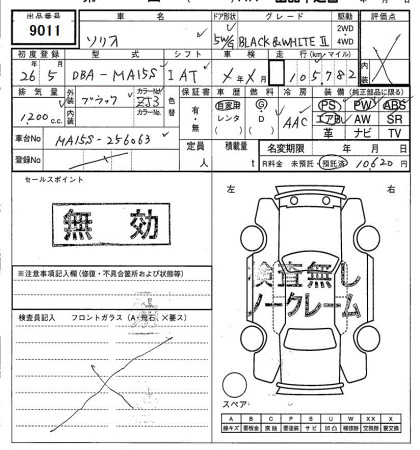 出品番号 車名 ドア形状 グレード 駆動 評価点
9011 ソリオ 5W/G BLACK&WHITE II 2WD・4WD 内装
初度登録 型式 シフト 車検 走行(km/マイル)
26 5 DBA-MA15S IAT メ年メ月 105,782
排気量 外装 カラーNo. 色替 保証書 車歴 燃料 冷房 装備(純正部品に限る)
1,200 c.c. ブラック ZJ3 有・無 自家用 レンタ ( ) G・D ( ) AAC PS PW ABS
内装 カラーNo. エアB AW SR
革 ナビ TV
車台No MA15S-256063 定員 人 積載量 t 名変期限 年 月 日
登録No R料金 未預託・預託済 10620 円
セールスポイント
無効
※注意事項記入欄(修復・不具合箇所および状態等)
検査員記入 フロントガラス(A・飛石、X要ス)
左 右
検査無し
ノークレーム
スペア
A B C P S U W X XX X
線キズ 要板金 腐蝕 要塗装 サビ 凹凸 補修跡 交換跡 要交換